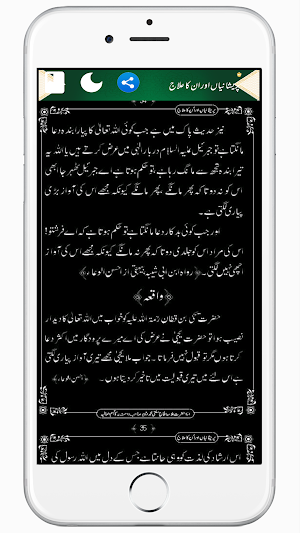 پریشانیاں اور ان کا علاج
34
پریشانیاں اور ان کا علاج
نیز حدیث پاک میں ہے جب کوئی اللہ تعالیٰ کا پیارا بندہ دعا
مانگتا ہے تو جبرئیل علیہ السلام دربار الٰہی میں عرض کرتے ہیں یا اللہ یہ
تیرا بندہ تجھ سے مانگ رہا ہے، تو حکم ہوتا ہے اے جبرئیل ٹھہر جا ابھی
اس کو نہ دو تا کہ پھر مانگے پھر مانگے کیونکہ مجھے اس کی آواز بڑی
پیاری لگتی ہے۔
اور جب کوئی بدکار دعا مانگتا ہے تو حکم ہوتا ہے کہ اے فرشتو!
اس کی مراد اس کو جلدی دو تا کہ پھر نہ مانگے کیونکہ مجھے اس کی آواز
اچھی نہیں لگتی۔ (رواہ ابن ابی شیبہ بیہقی از احسن الوعاء)
واقعہ
حضرت یحییٰ بن قطان رحمۃ اللہ علیہ کو خواب میں اللہ تعالیٰ کا دیدار
نصیب ہوا تو حضرت یحییٰ نے عرض کی اے میرے پروردگار میں اکثر دعا
کرتا ہوں مگر تو قبول نہیں فرماتا۔ جواب ملا یحییٰ مجھے تیری آواز پیاری لگتی
ہے اس لئے میں تیری قبولیت میں تاخیر کر دیتا ہوں۔ (احسن الوعاء)
35
پریشانیاں اور ان کا علاج
اس ارشاد کی لذت کو وہی جانتا ہے جس کے دل میں اللہ رسول کی